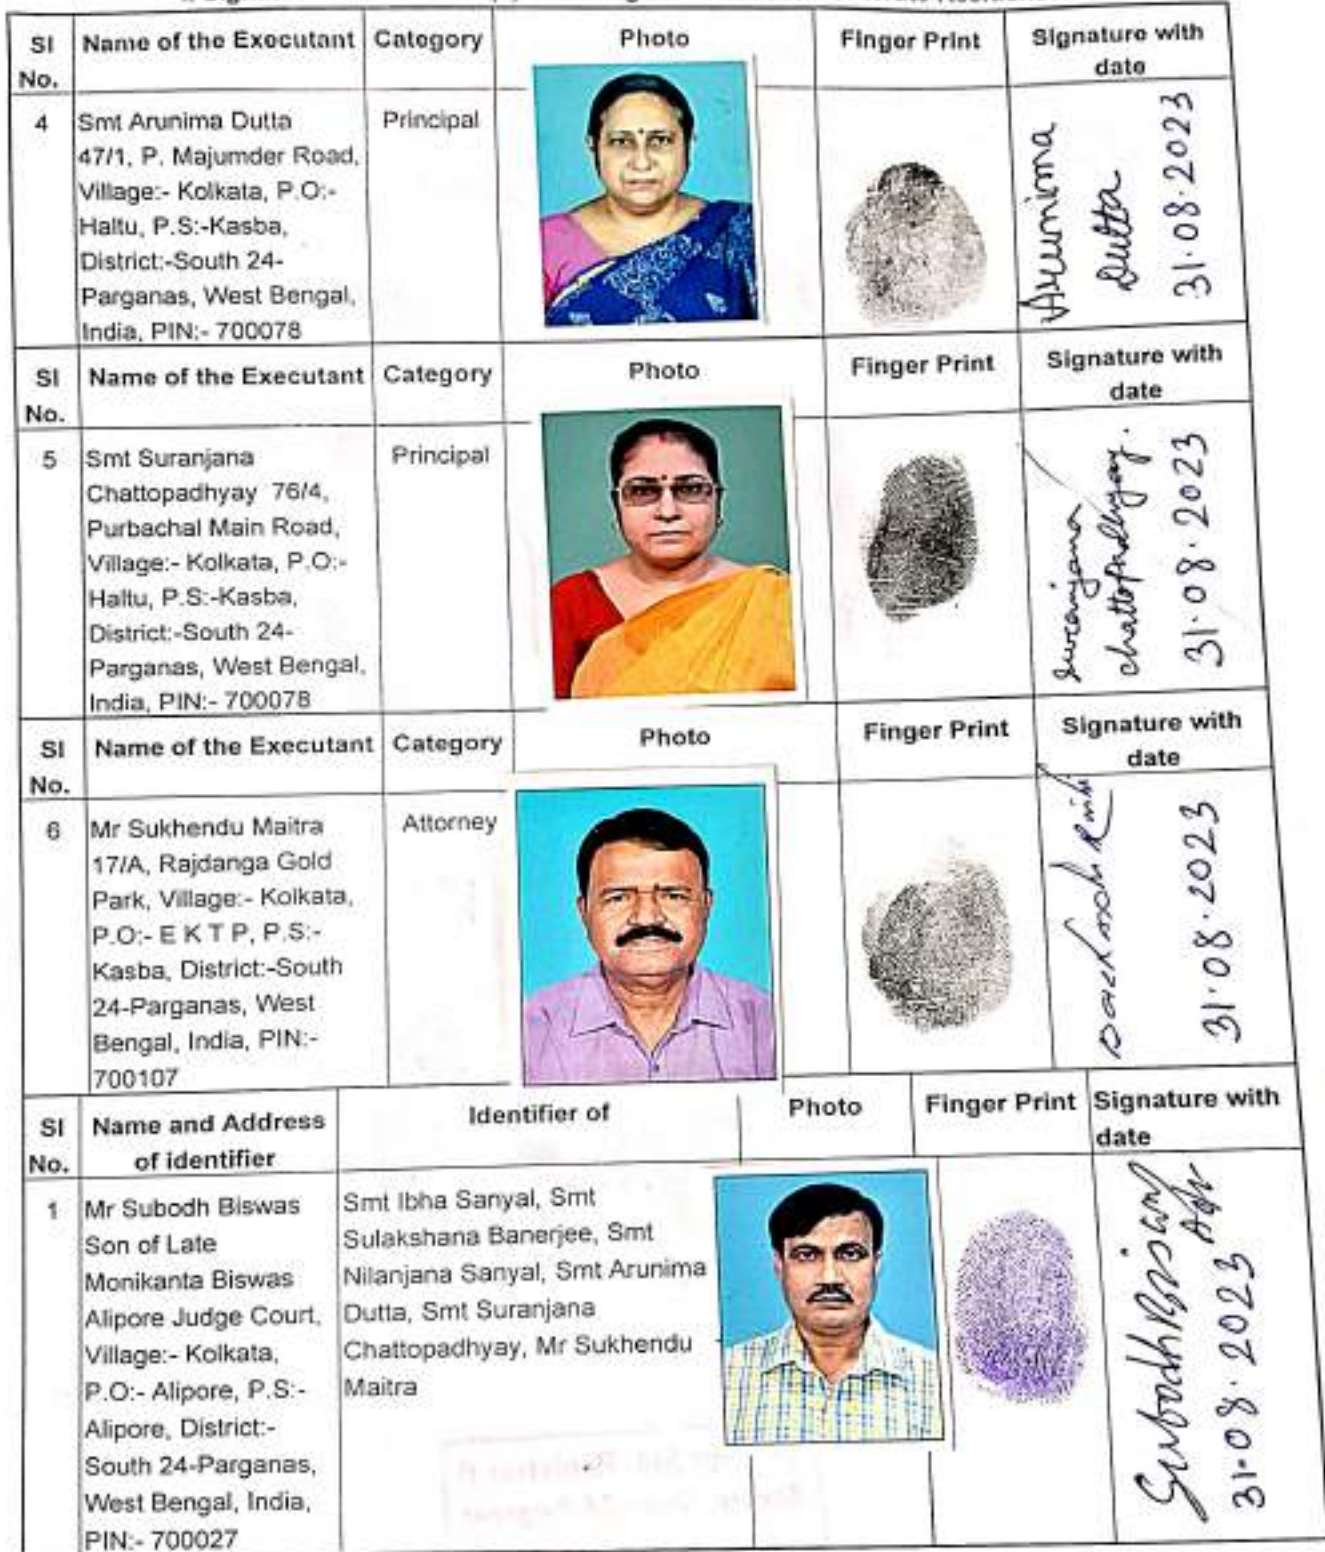 Sl No. Name of the Executant Category Photo Finger Print Signature with date
4 Smt Arunima Dutta Principal
47/1, P. Majumder Road,
Village:- Kolkata, P.O:-
Haltu, P.S:-Kasba,
District:-South 24-
Parganas, West Bengal,
India, PIN:- 700078
Arunima
Dutta
31.08.2023
Sl No. Name of the Executant Category Photo Finger Print Signature with date
5 Smt Suranjana Principal
Chattopadhyay 76/4,
Purbachal Main Road,
Village:- Kolkata, P.O:-
Haltu, P.S:-Kasba,
District:-South 24-
Parganas, West Bengal,
India, PIN:- 700078
Suranjana
Chattopadhyay.
31.08.2023
Sl No. Name of the Executant Category Photo Finger Print Signature with date
6 Mr Sukhendu Maitra Attorney
17/A, Rajdanga Gold
Park, Village:- Kolkata,
P.O:- E K T P, P.S:-
Kasba, District:-South
24-Parganas, West
Bengal, India, PIN:-
700107
31.08.2023
Sl No. Name and Address of identifier Identifier of Photo Finger Print Signature with date
1 Mr Subodh Biswas
Son of Late
Monikanta Biswas
Alipore Judge Court,
Village:- Kolkata,
P.O:- Alipore, P.S:-
Alipore, District:-
South 24-Parganas,
West Bengal, India,
PIN:- 700027
Smt Ibha Sanyal, Smt
Sulakshana Banerjee, Smt
Nilanjana Sanyal, Smt Arunima
Dutta, Smt Suranjana
Chattopadhyay, Mr Sukhendu
Maitra
Subodh Biswas
31.08.2023